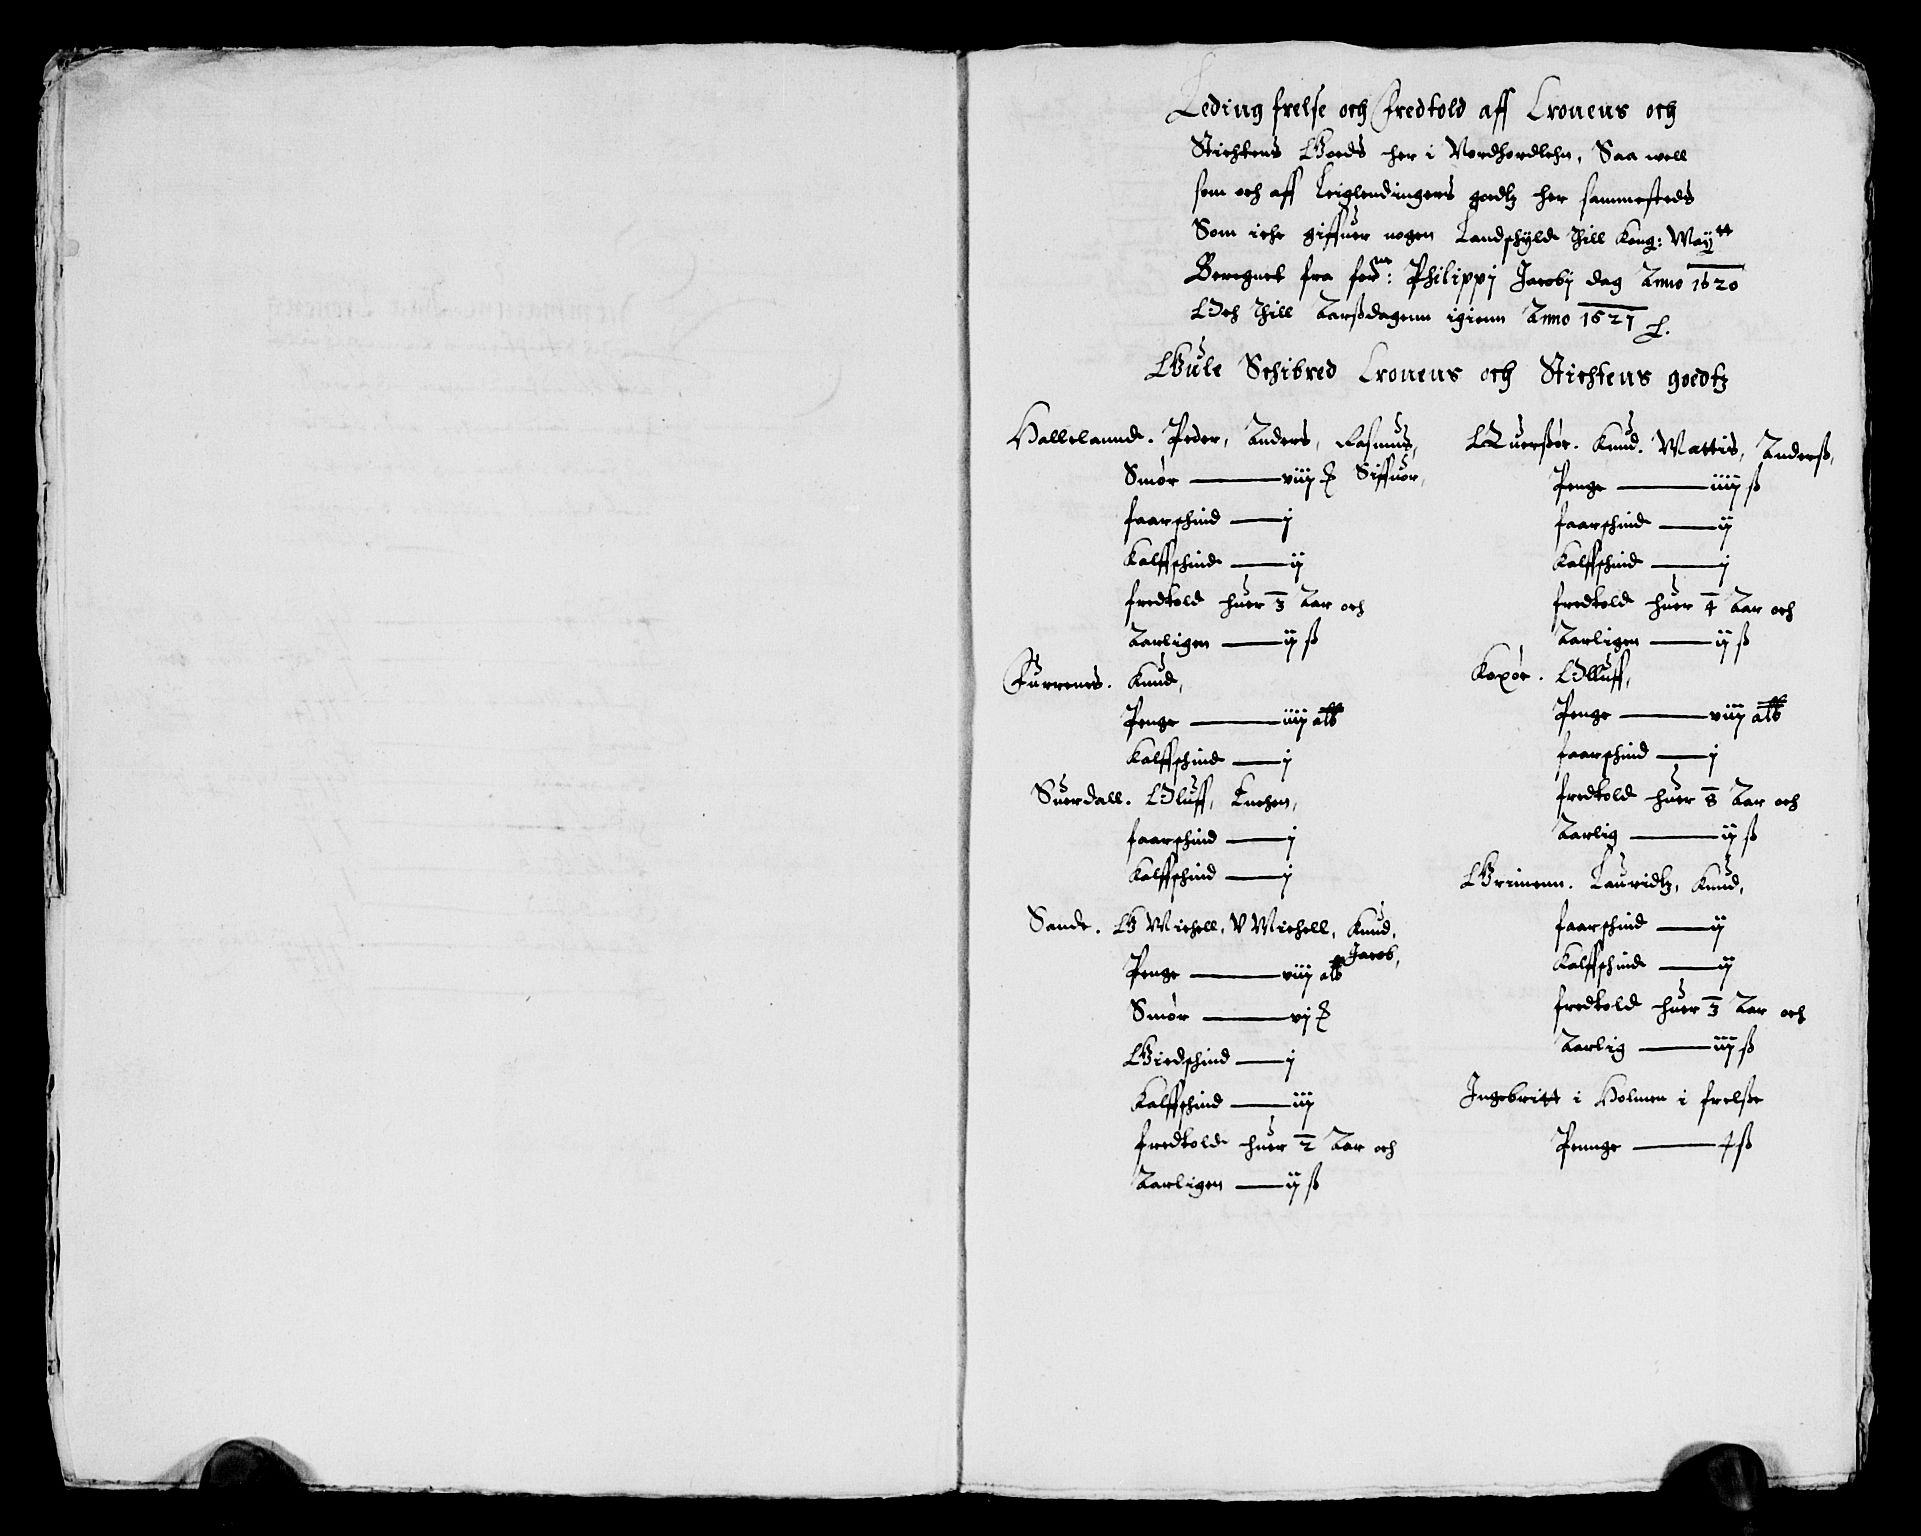 Leding frelse och Fredtold aff Cronens och
Stichtens Goeds her i Nordhordlehn, Saa well
som och aff Leiglendingers goedtz her sammesteds
Som iche giffuer nogen Landschÿld thill Kong: Maÿtt
Beregnet fra ferne: Philippj Jacobj dag Anno 1620
Och thill Aarßdagenn igienn Anno 1621
Gule Schibred Cronens och Stichtens goedtz
Hallelannd. Peder, Anders, Rasmus,
Smør viij Siffuor,
faarschind j
Kalffschind ij
fredtold huer 3 Aar och
Aarligen ij ß
Furrenes. Knud,
Penge iiij alb
Kalffschind j
Suerdall. Oluff, Enchen,
faarschind j
Kalffschind j
Sande. G Michell, V Michell, Knud,
Jacob,
Penge viij alb
Smør vj
Giedschind j
Kalffschind iij
fredtold huer 2 Aar och
Aarligen ij ß
Querßøe. Knud. Mattis, Anderß,
Penge iiij ß
faarschind ij
Kalffschind j
fredtold huer 4 Aar och
Aarligen ij ß
Koxøe. Olluff,
Penge viij alb
faarschind j
fredtold huer 8 Aar och
Aarlig ij ß
Grimenn. Lauridtz, Knud,
faarschind ij
Kalffschind ij
fredtold huer 3 Aar och
Aarlig iij ß
Ingebritt i Holmen i frelße
Pennge ß